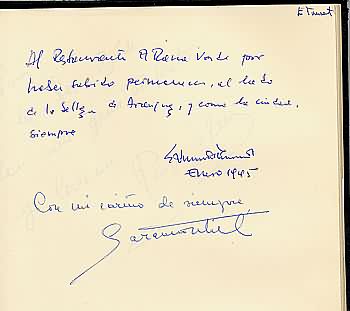 E Tamat
Al Restaurante El Rana Verde por
haber sabido permanecer, al lado
de la belleza de Aranjuez, y como la ciudad,
siempre
Enero 1995
Con mi cariño de siempre
Saramontiel